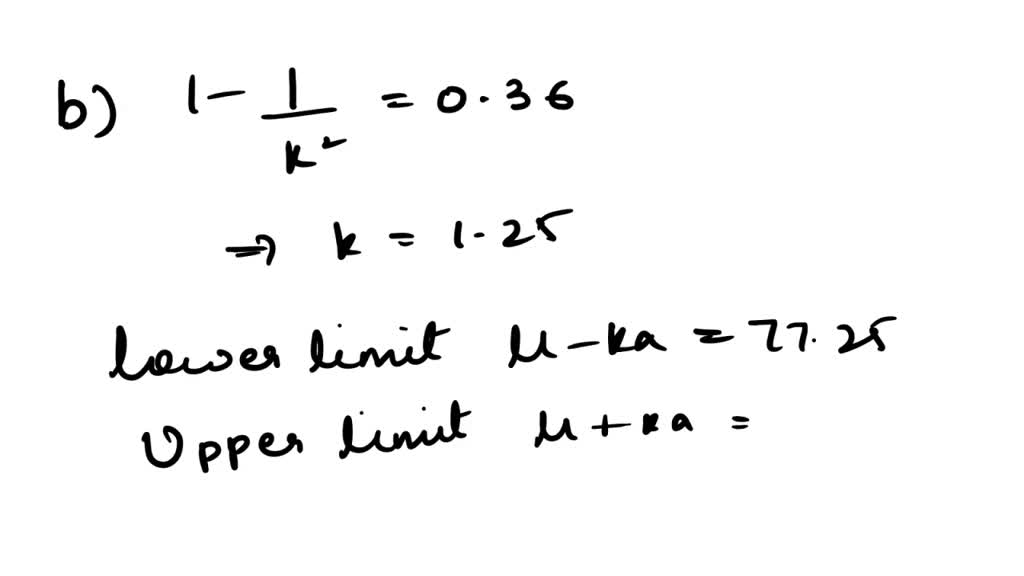 b) 1 - 1/k² = 0.36
⇒ k = 1.25
Lower limit μ - ka = 77.25
Upper limit μ + ka =